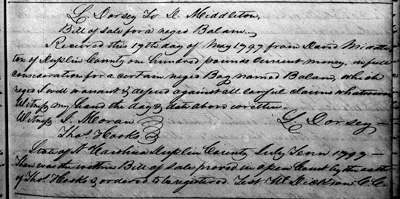 L Dorsey To D. Middleton
Bill of sale for a negro Balam.
Received this 17th day of May 1797 from David Middle
ton of Duplin County one hundred pounds current money, in full
consideration for a certain negro Boy named Balam, which
negro I will warrant & defend against all lawful claims whatsoever
Witness my hand the day & date above written.
Witness J. Moran L Dorsey
Thos Hooks
State of No Carolina Duplin County July Term 1797
Then was the within Bill of Sale proved in open Court by the oath
of Thos Hooks & ordered to be registered Test W Dickson C.C.